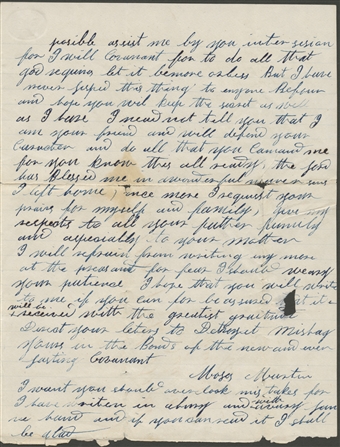 posible assist me by you inter sision
for I will Covanant for to do all that
god requires let it be more or less But I have
never lisped this thing to anyone Before
and hope you will keep the secret as well
as I have I need not tell you that I
am your friend and will defend your
Caracter and do all that you Comand me
for you know this all ready the lord
has Blessed me in a wonderful maner since
I left home once more I request your
prairs for myself and family, give my
respects to all your father family
and aspesialy to your mother
I will refrain from writing any more
at the preasant for fear I should weary
your patience I hope that you will write
to me if you can for be assured that it
will be received with the greatest gratitude
Derect your leters to Dethroyet Mishag
yours in the Bonds of the new and ever
lasting Covanant
Moses Martin
I want you should over look mis takes for
I have writen in a hurry and with every
hand and if you can read it I shall
be glad